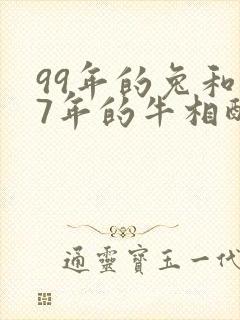 99年的兔和
7年的牛相配
通靈寶玉一代